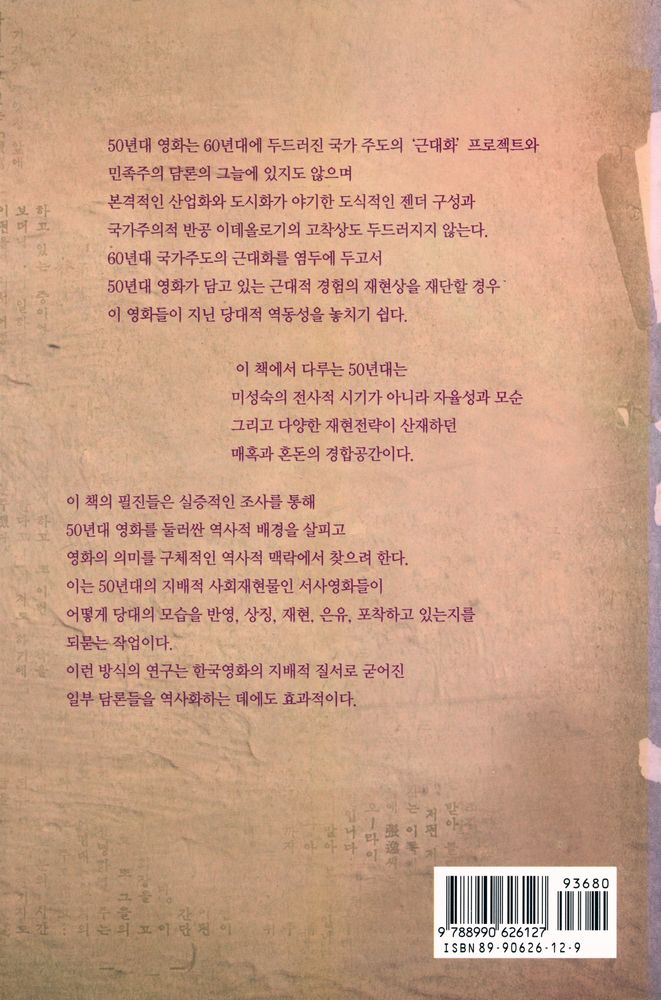 50년대 영화는 60년대에 두드러진 국가 주도의 '근대화' 프로젝트와
민족주의 담론의 그늘에 있지도 않으며
본격적인 산업화와 도시화가 야기한 도식적인 젠더 구성과
국가주의적 반공 이데올로기의 고착상도 두드러지지 않는다.
60년대 국가주도의 근대화를 염두에 두고서
50년대 영화가 담고 있는 근대적 경험의 재현상을 재단할 경우
이 영화들이 지닌 당대적 역동성을 놓치기 쉽다.
이 책에서 다루는 50년대는
미성숙의 전사적 시기가 아니라 자율성과 모순
그리고 다양한 재현전략이 산재하던
매혹과 혼돈의 경합공간이다.
이 책의 필진들은 실증적인 조사를 통해
50년대 영화를 둘러싼 역사적 배경을 살피고
영화의 의미를 구체적인 역사적 맥락에서 찾으려 한다.
이는 50년대의 지배적 사회재현물인 서사영화들이
어떻게 당대의 모습을 반영, 상징, 재현, 은유, 포착하고 있는지를
되묻는 작업이다.
이런 방식의 연구는 한국영화의 지배적 질서로 굳어진
일부 담론들을 역사화하는 데에도 효과적이다.
93680
9 788990 626127
ISBN 89-90626-12-9